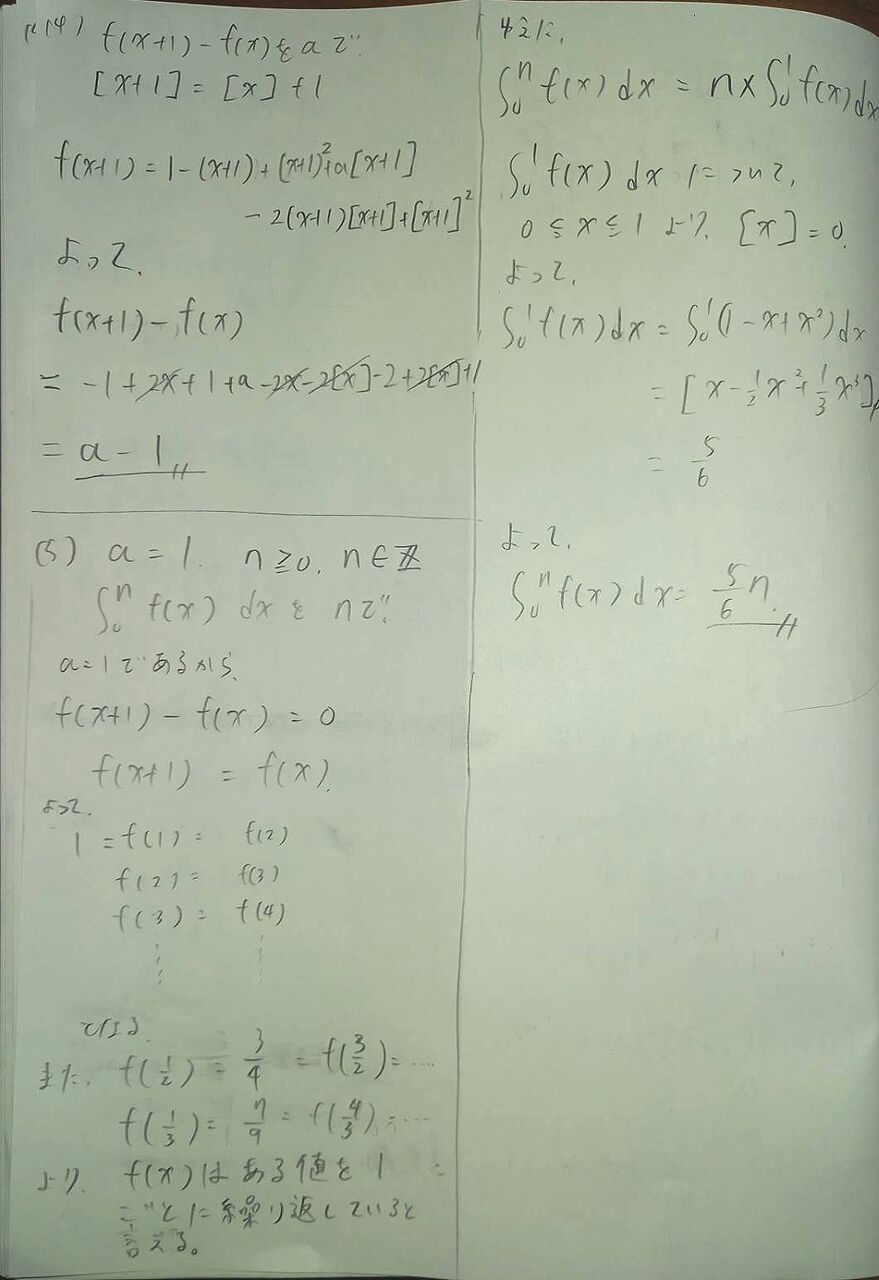 (4) f(x+1)-f(x)をaで
[x+1]=[x]+1
f(x+1)=1-(x+1)+(x+1)²+a[x+1]
-2(x+1)[x+1]+[x+1]²
よって、
f(x+1)-f(x)
=-1+2x+1+a-2x-2[x]-2+2[x]+1
=a-1
(5) a=1. n≧0, n∈ℤ
∫₀ⁿ f(x) dx を nで
a=1であるから、
f(x+1)-f(x)=0
f(x+1)=f(x).
よって.
1=f(1)= f(2)
f(2)= f(3)
f(3)= f(4)
となる
また、f(1/2)=3/4=f(3/2)=……
f(1/3)=7/9=f(4/3)=……
より、f(x)はある値を1
ごとに繰り返していると
言える。
ゆえに、
∫₀ⁿ f(x) dx = n×∫₀¹ f(x) dx
∫₀¹ f(x) dx について、
0≦x≦1より、[x]=0.
よって、
∫₀¹ f(x) dx = ∫₀¹(1-x+x²)dx
=[x-1/2x²+1/3x³]
=5/6
よって、
∫₀ⁿ f(x) dx = 5/6 n